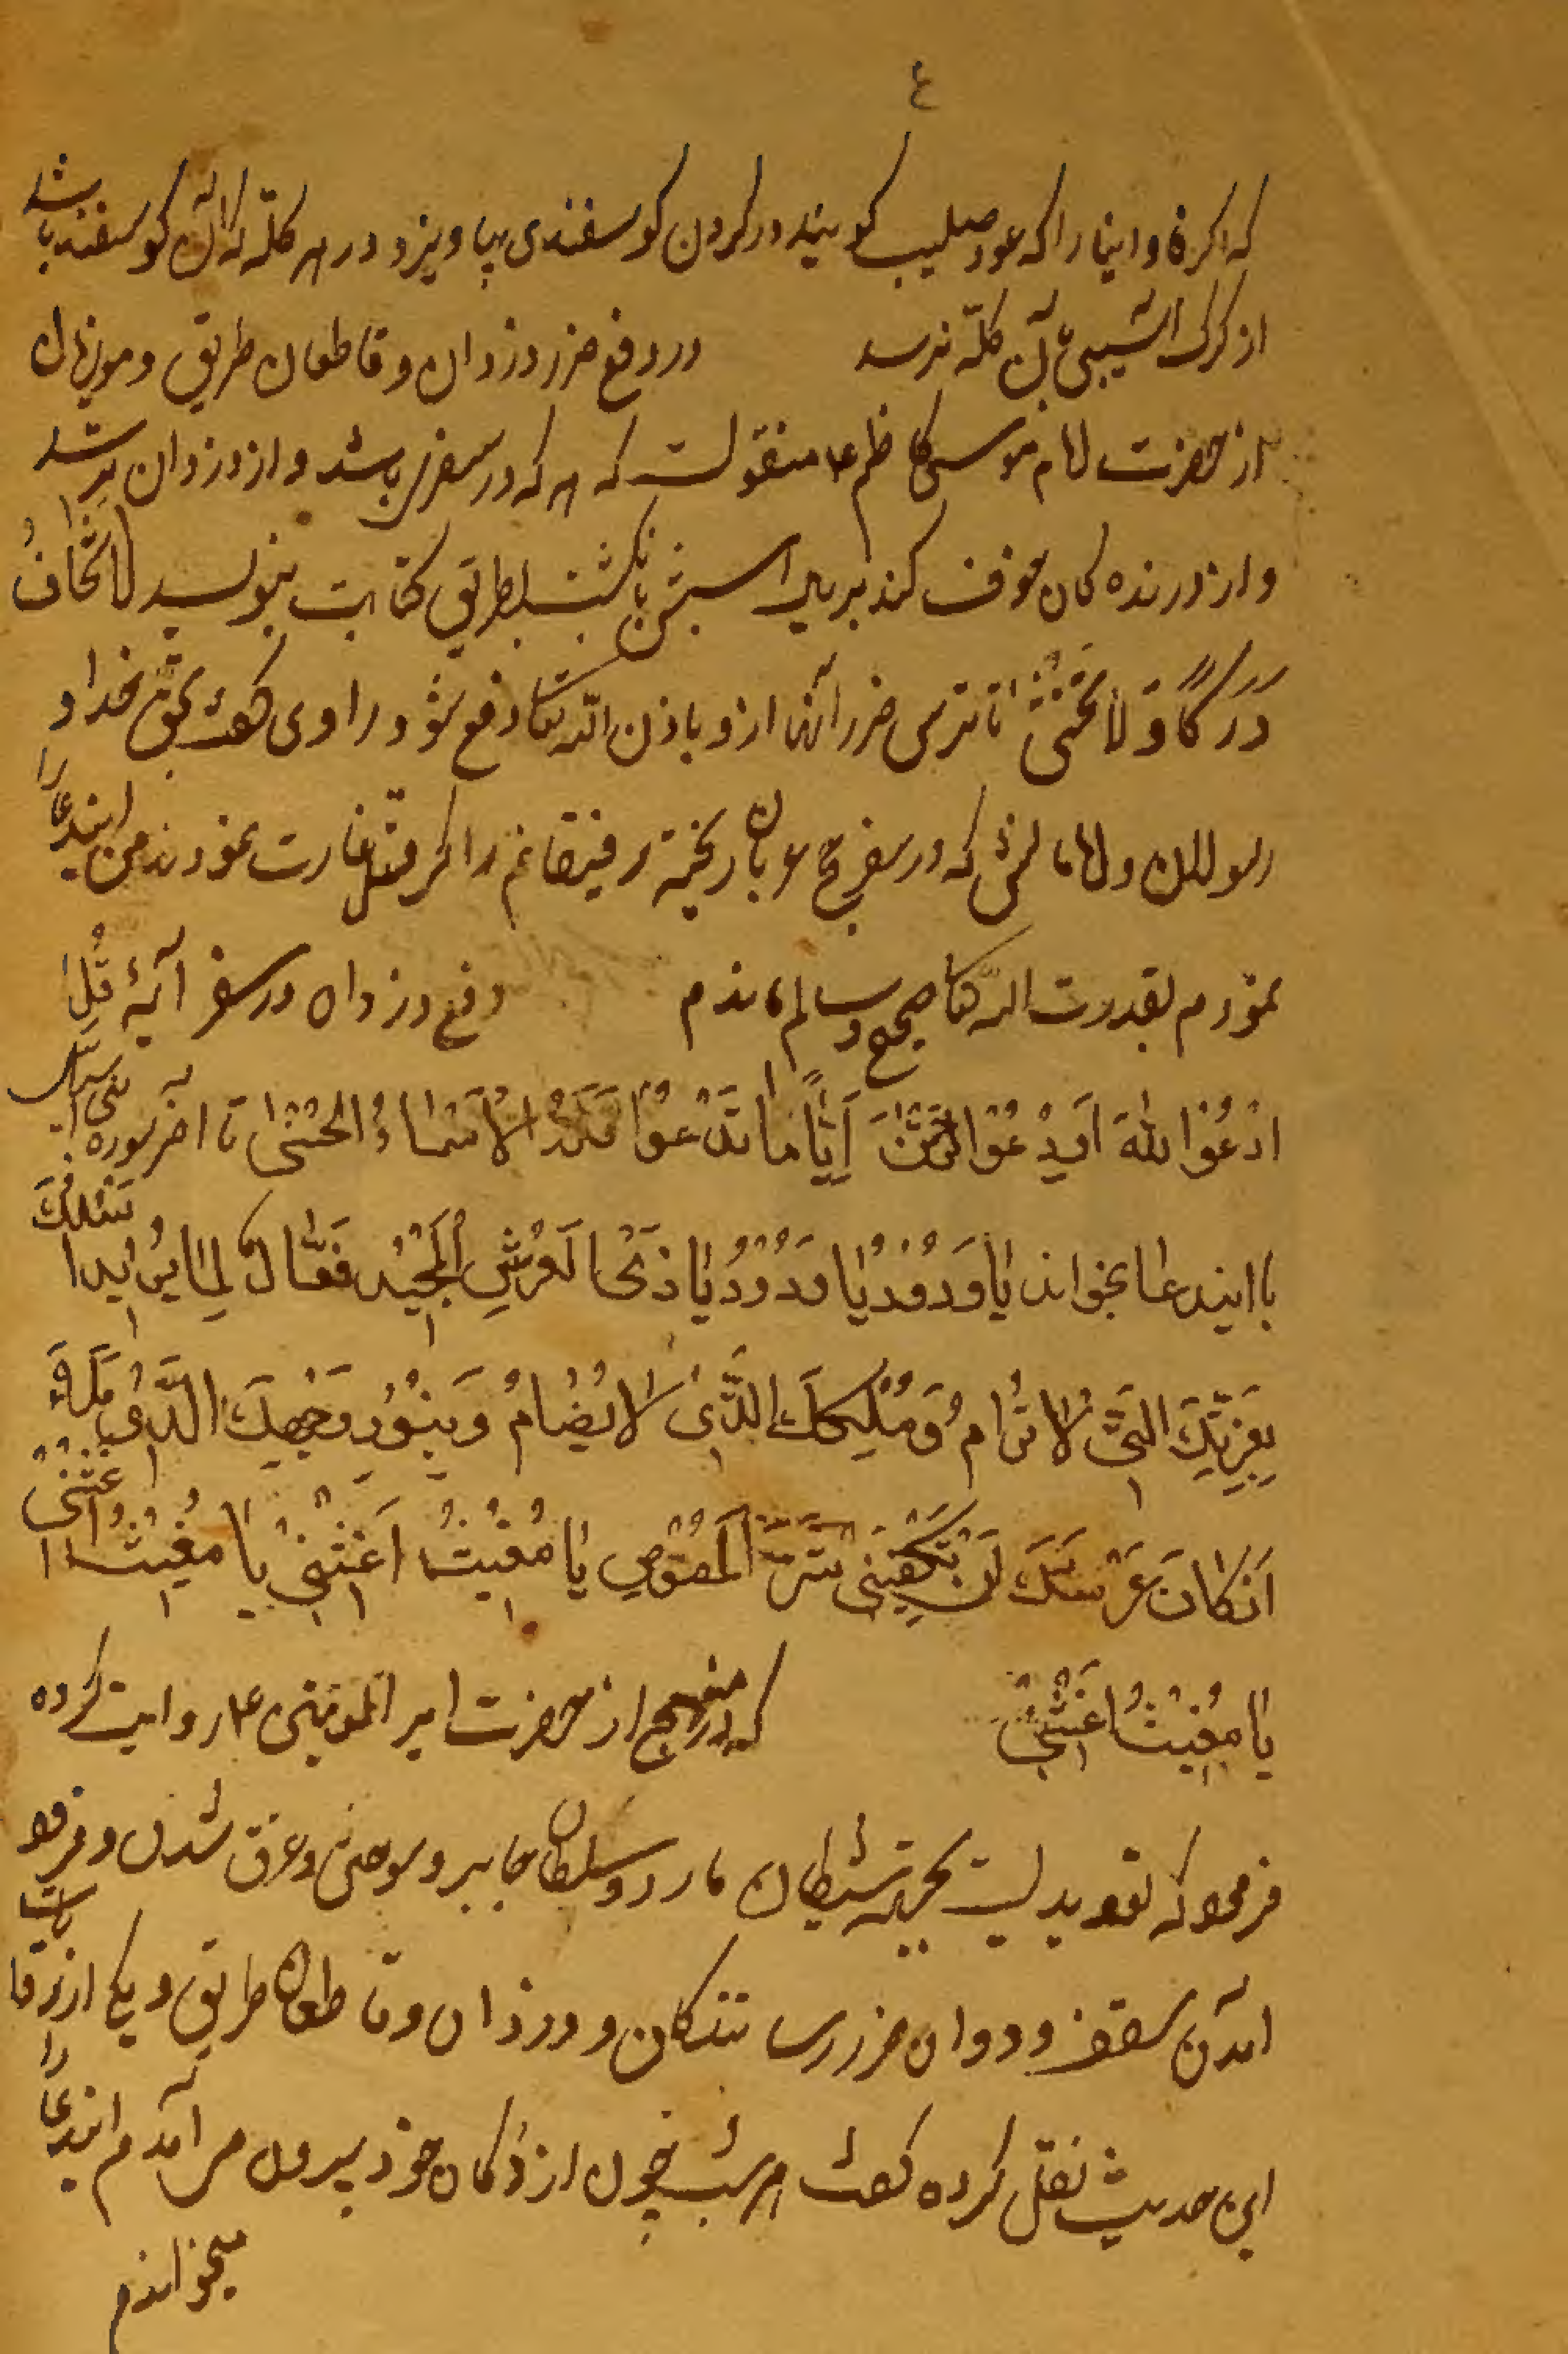 ع
که اکر فاوانیا را که عود صلیب کویند در کردن کوسفندی بیاویزد و در هر کلّه که آن کوسفند باشد
از کرک آسیبی بآن کلّه نرسد در دفع ضرر دزدان و قاطعان طریق و موذیان
از حضرت امام موسی کاظم ع منقولست که هر که در سفری باشد و از دزدان ترسد
و از درنده کان خوف کند بر یال اسبش بانکشت بطریق کتابت بنویسد لا تَخافُ
دَرَکاً وَ لا تَخْشی تا نترسی ضرر آنها ازو باذن اللّه تعا دفع شود راوی کفت بحق خدا و
رسول الله و امامان که در سفر حج عربان ریخته رفیقانم را کرفته غارت نمودند من ایندعا را
نمودم بقدرت اللّه تعا صحیح و سالم ماندم دفع دزدان در سفر آیهٔ قُلِ
ادْعُوا اللهَ اَوِ ادْعُوا الرَّحْمنَ اَیًّا ما تَدْعُوا فَلَهُ الْاَسْماءُ الْحُسْنی تا آخر سوره
با ایندعا بخواند یا وَدُودُ یا وَدُودُ یا ذَا الْعَرْشِ الْمَجیدِ فَعّالٌ لِما یُریدُ اَسْئَلُکَ
بِعِزَّتِکَ الَّتی لا تُرامُ وَ مُلْکِکَ الَّذی لا یُضامُ وَ بِنُورِ وَجْهِکَ الَّذی مَلَأَ
اَرْکانَ عَرْشِکَ اَنْ تَکْفِیَنی شَرَّ اللُّصُوصِ یا مُغیثُ اَغِثْنی یا مُغیثُ اَغِثْنی
یا مُغیثُ اَغِثْنی که در منهج از حضرت امیر المومنین ع روایت کرده
فرمود که تعویدیست بجهة شیطان مارد و سلطان جابر و سوختن و غرق شدن و فرود
امدن سقف و ددان ضرر رسانندکان و دزدان و قاطعان طریق و یکی از رواة
این حدیث نقل کرده کفت هر شب چون از دکان خود بیرون می آمدم ایندعا را
میخواندم